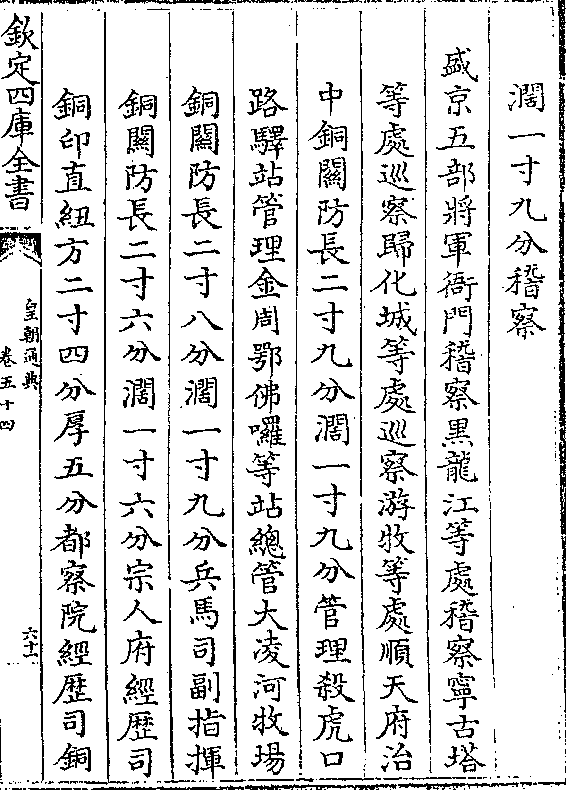 濶一寸九分稽察
盛京五部將軍衙門稽察黒龍江等處稽察寧古塔
等處巡察歸化城等處巡察游牧等處順天府治
中銅關防長二寸九分濶一寸九分管理殺虎口
路驛站管理金周鄂佛囉等站總管大凌河牧場
銅關防長二寸八分濶一寸九分兵馬司副指揮
銅關防長二寸六分濶一寸六分宗人府經歴司
銅印直紐方二寸四分厚五分都察院經歴司銅
欽定四庫全書
皇朝通典
卷五十四
六十一